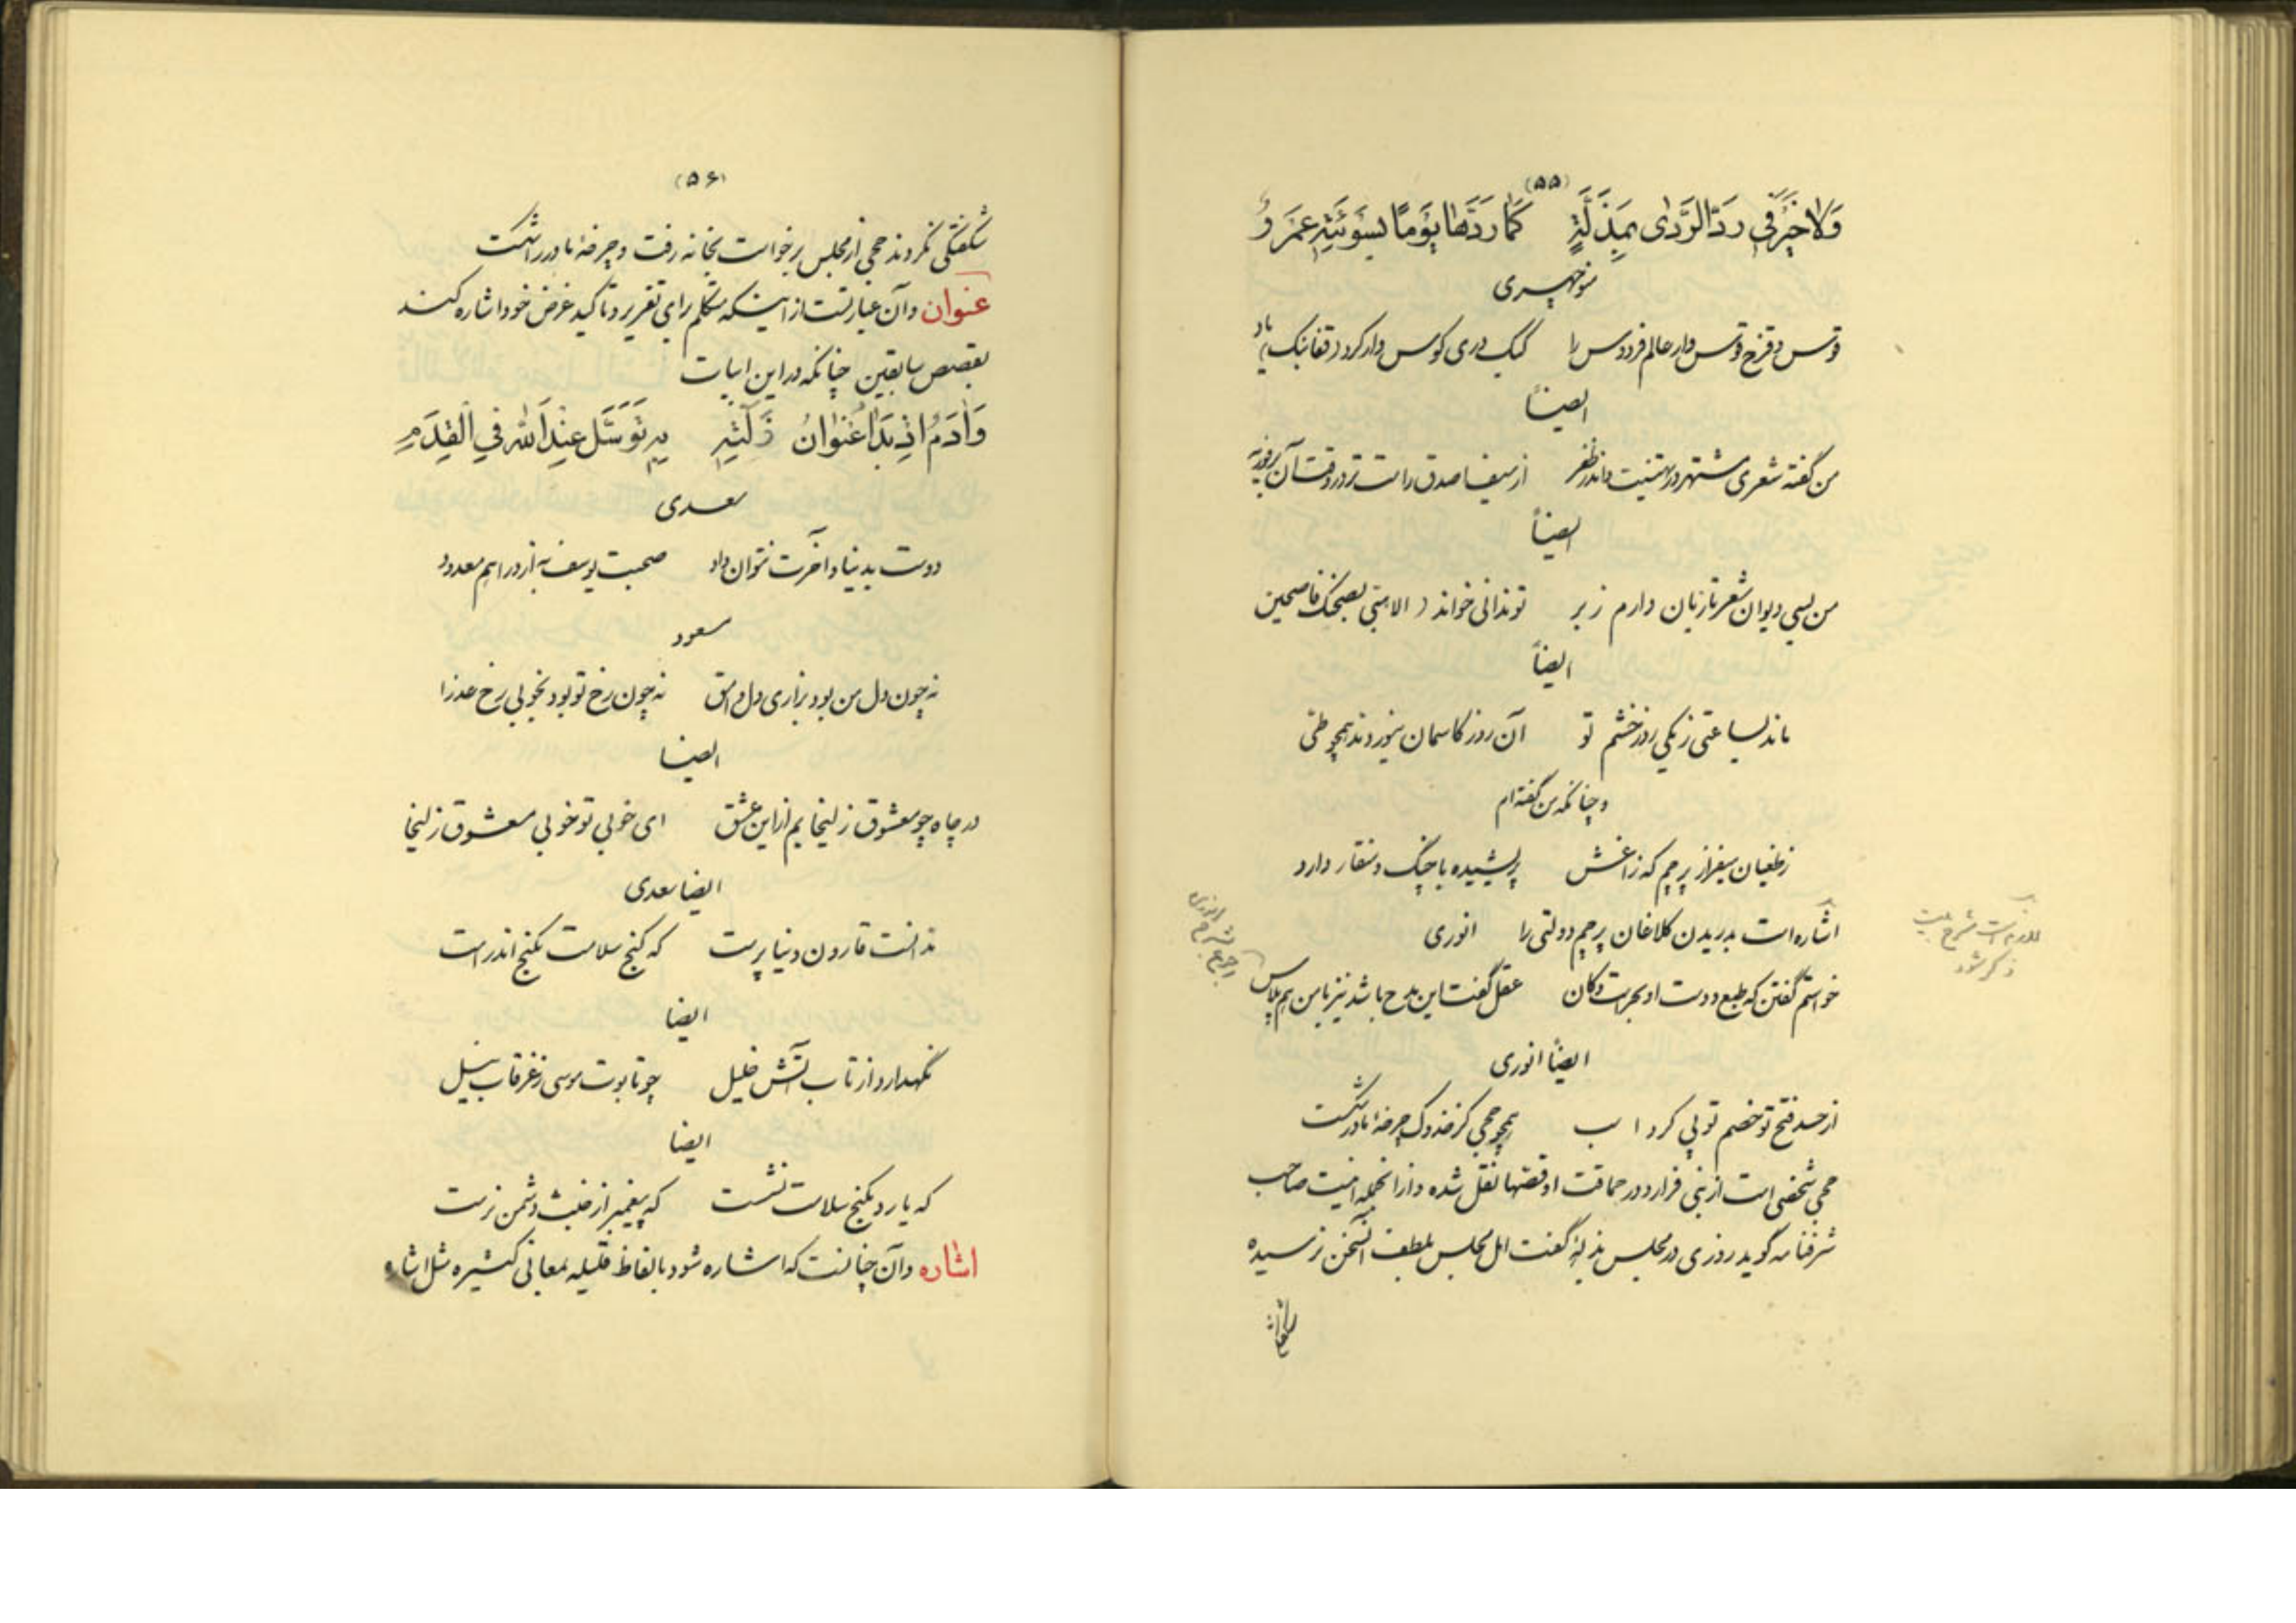 (۵۵)
وَلا خَیْرَ فی رَدِّ الرَّدی بِمَذَلَّةٍ کَما رَدَّها یَوْمًا بِسَوْئَتِهِ عَمْرُو
منوچهری
قوس و قزح قوس وار عالم فردوس را کبک دری کوس وار کرد قفانبک یاد
ایضاً
من گفته شعری مشتهر در تهنیت واندر ظفر از سیف اصدق راست تر در وقت آن
ایضاً
من بسی دیوان شعر تازیان دارم ز بر تو ندانی خواند الا هبی بصحنک فاصبحین
ایضاً
ماند بساعتی ز یکی روز خشم تو آن روز کاسمان بنوردند همچو طی
و چنانکه من گفته‌ام
ز طغیان بیفراز پرچم که زاغش پریشیده با چنگ و منقار دارد
اشاره است بدریدن کلاغان پرچم دولتی را انوری
ذکر شود
خواستم گفتن که طبع و دست او بحر است و کان عقل گفت این مدح باشد نیز با من هم پلاس
ایضاً انوری
از حسد فتح تو خصم تو پی کرد اسب همچو جحی کز خدوک چرخهٔ مادر شکست
جحی شخصی است از بنی فزاره در حماقت او قصّتها نقل شده و از آنجمله اینست صاحب
شرفنامه گوید روزی در مجلس بذلهٔ گفت اهل مجلس بلطف آن سخن نرسیده
(۵۶)
شگفتگی نکردند جحی از مجلس برخواست بخانه رفت و چرخهٔ مادر را شکست
عنوان و آن عبارتست از اینکه متکلم برای تقریر و تاکید غرض خود اشاره کند
بقصص سابقین چنانکه در این ابیات
وَآدَمُ اِذْ بَدَا عُنْوانُ ذَلَّتِهِ بِهِ تَوَسَّلَ عِنْدَ اللهِ فِی الْقِدَمِ
سعدی
دوست بدنیا و آخرت نتوان داد صحبت یوسف به از دراهم معدود
مسعود
نه چون دل من بود بزاری دل وامق نه چون رخ تو بود بخوبی رخ عذرا
ایضا
در چاه چو معشوق زلیخایم از این عشق ای خوبی تو خوبی معشوق زلیخا
ایضا سعدی
ندانست قارون دنیا پرست که گنج سلامت بکنج اندر است
ایضا
نگهدارد از تاب آتش خلیل چو تابوت موسی ز غرقاب نیل
ایضا
که یارد بکنج سلامت نشست که پیغمبر از خبث دشمن نرست
اشاره و آن چنانست که اشاره شود بالفاظ قلیله بمعانی کثیره مثل اشاره